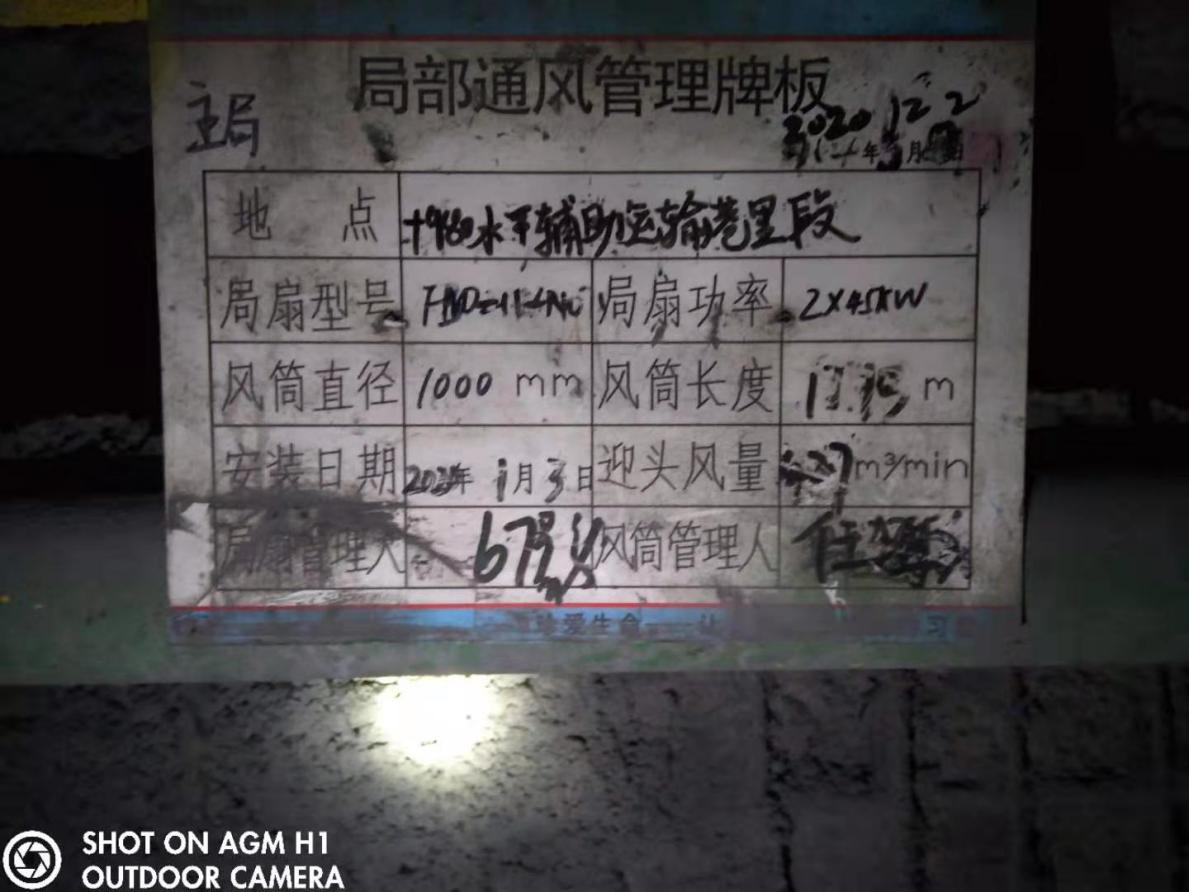 局部通风管理牌板
主局
2020 12 2
年 月
地点 +960水平辅助运输巷里段
局扇型号 局扇功率 2×45KW
风筒直径 1000 mm 风筒长度 m
安装日期 年1月3日 迎头风量 m³/min
局扇管理人 风筒管理人 任
爱生命
习
SHOT ON AGM H1
OUTDOOR CAMERA